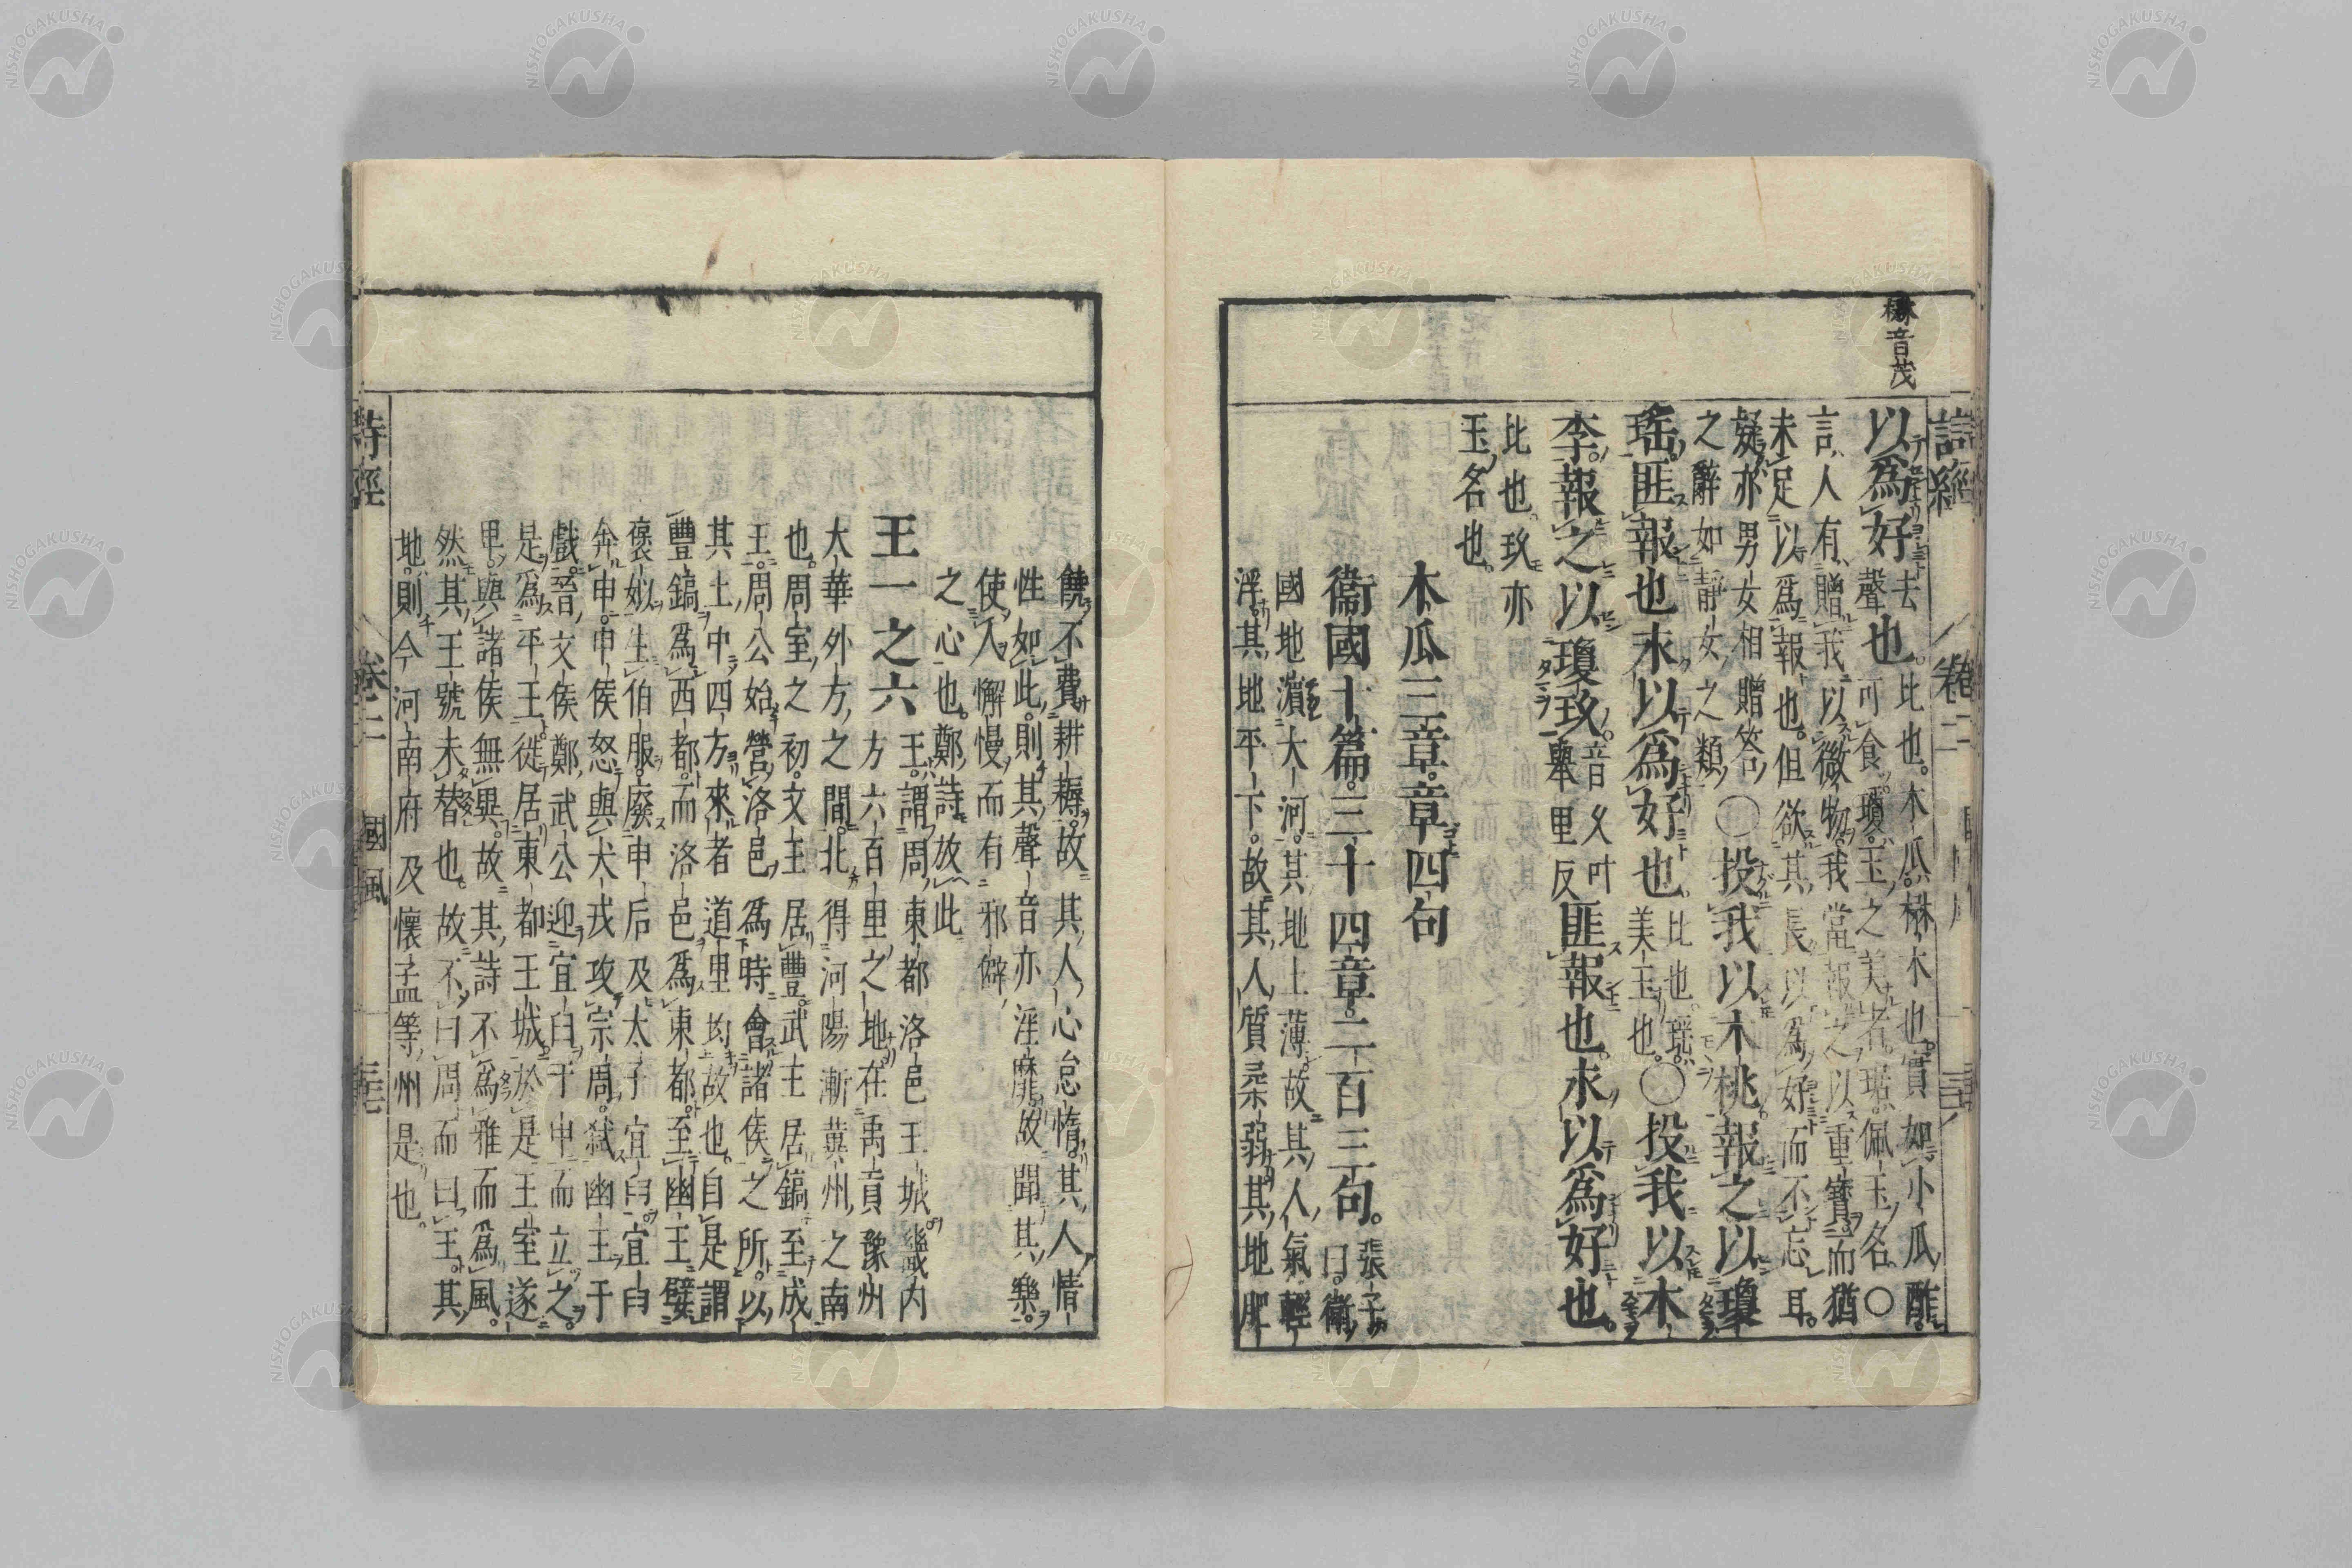 楙音茂
詩經 卷二
以爲好去聲也。比也。木瓜。楙木也。實如小瓜。酢
可食。瓊。玉之美者。琚。佩玉名。○
言人有贈我以微物。我當報之以重寶。而猶
未足以爲報也。但欲其長以爲好而不忘耳。
疑亦男女相贈答
之辭如靜女之類○投我以木桃報之以瓊
瑤。匪報也永以爲好也。比也。瑤。美玉也。○投我以木
李。報之以瓊玖。音久叶舉里反匪報也。永以爲好也。
比也。玖亦
玉名也。
木瓜三章。章四句
衞國十篇。三十四章。二百三句。張子曰。衞
國地濵大河。其地土薄。故其人氣輕
浮。其地平下。故其人質柔弱。其地肥
饒。不費耕耨。故其人心怠惰。其人情
性如此。則其聲音亦淫靡。故聞其樂。
使人懈慢而有邪僻
之心也。鄭詩放此
王一之六 王。謂周東都洛邑王城。畿内
方六百里之地。在禹貢豫州
大華外方之間。北得河陽漸冀州之南
也。周室之初。文王居豐。武王居鎬。至成
王。周公始營洛邑。爲時會諸侯之所。以
其土中。四方來者道里均故也。自是謂
豐鎬爲西都。而洛邑爲東都。至幽王嬖
褒姒生伯服。廢申后及太子宜臼。宜臼
奔申。申侯怒與犬戎攻宗周。弑幽王于
戲。晉文侯鄭武公迎宜臼于申而立之。
是爲平王。徙居東都王城。於是王室遂
卑。與諸侯無異。故其詩不爲雅而爲風。
然其王號未替也。故不曰周而曰王。其
地。則今河南府及懷孟等州是也。
詩經 卷二 國風
NISHOGAKUSHA